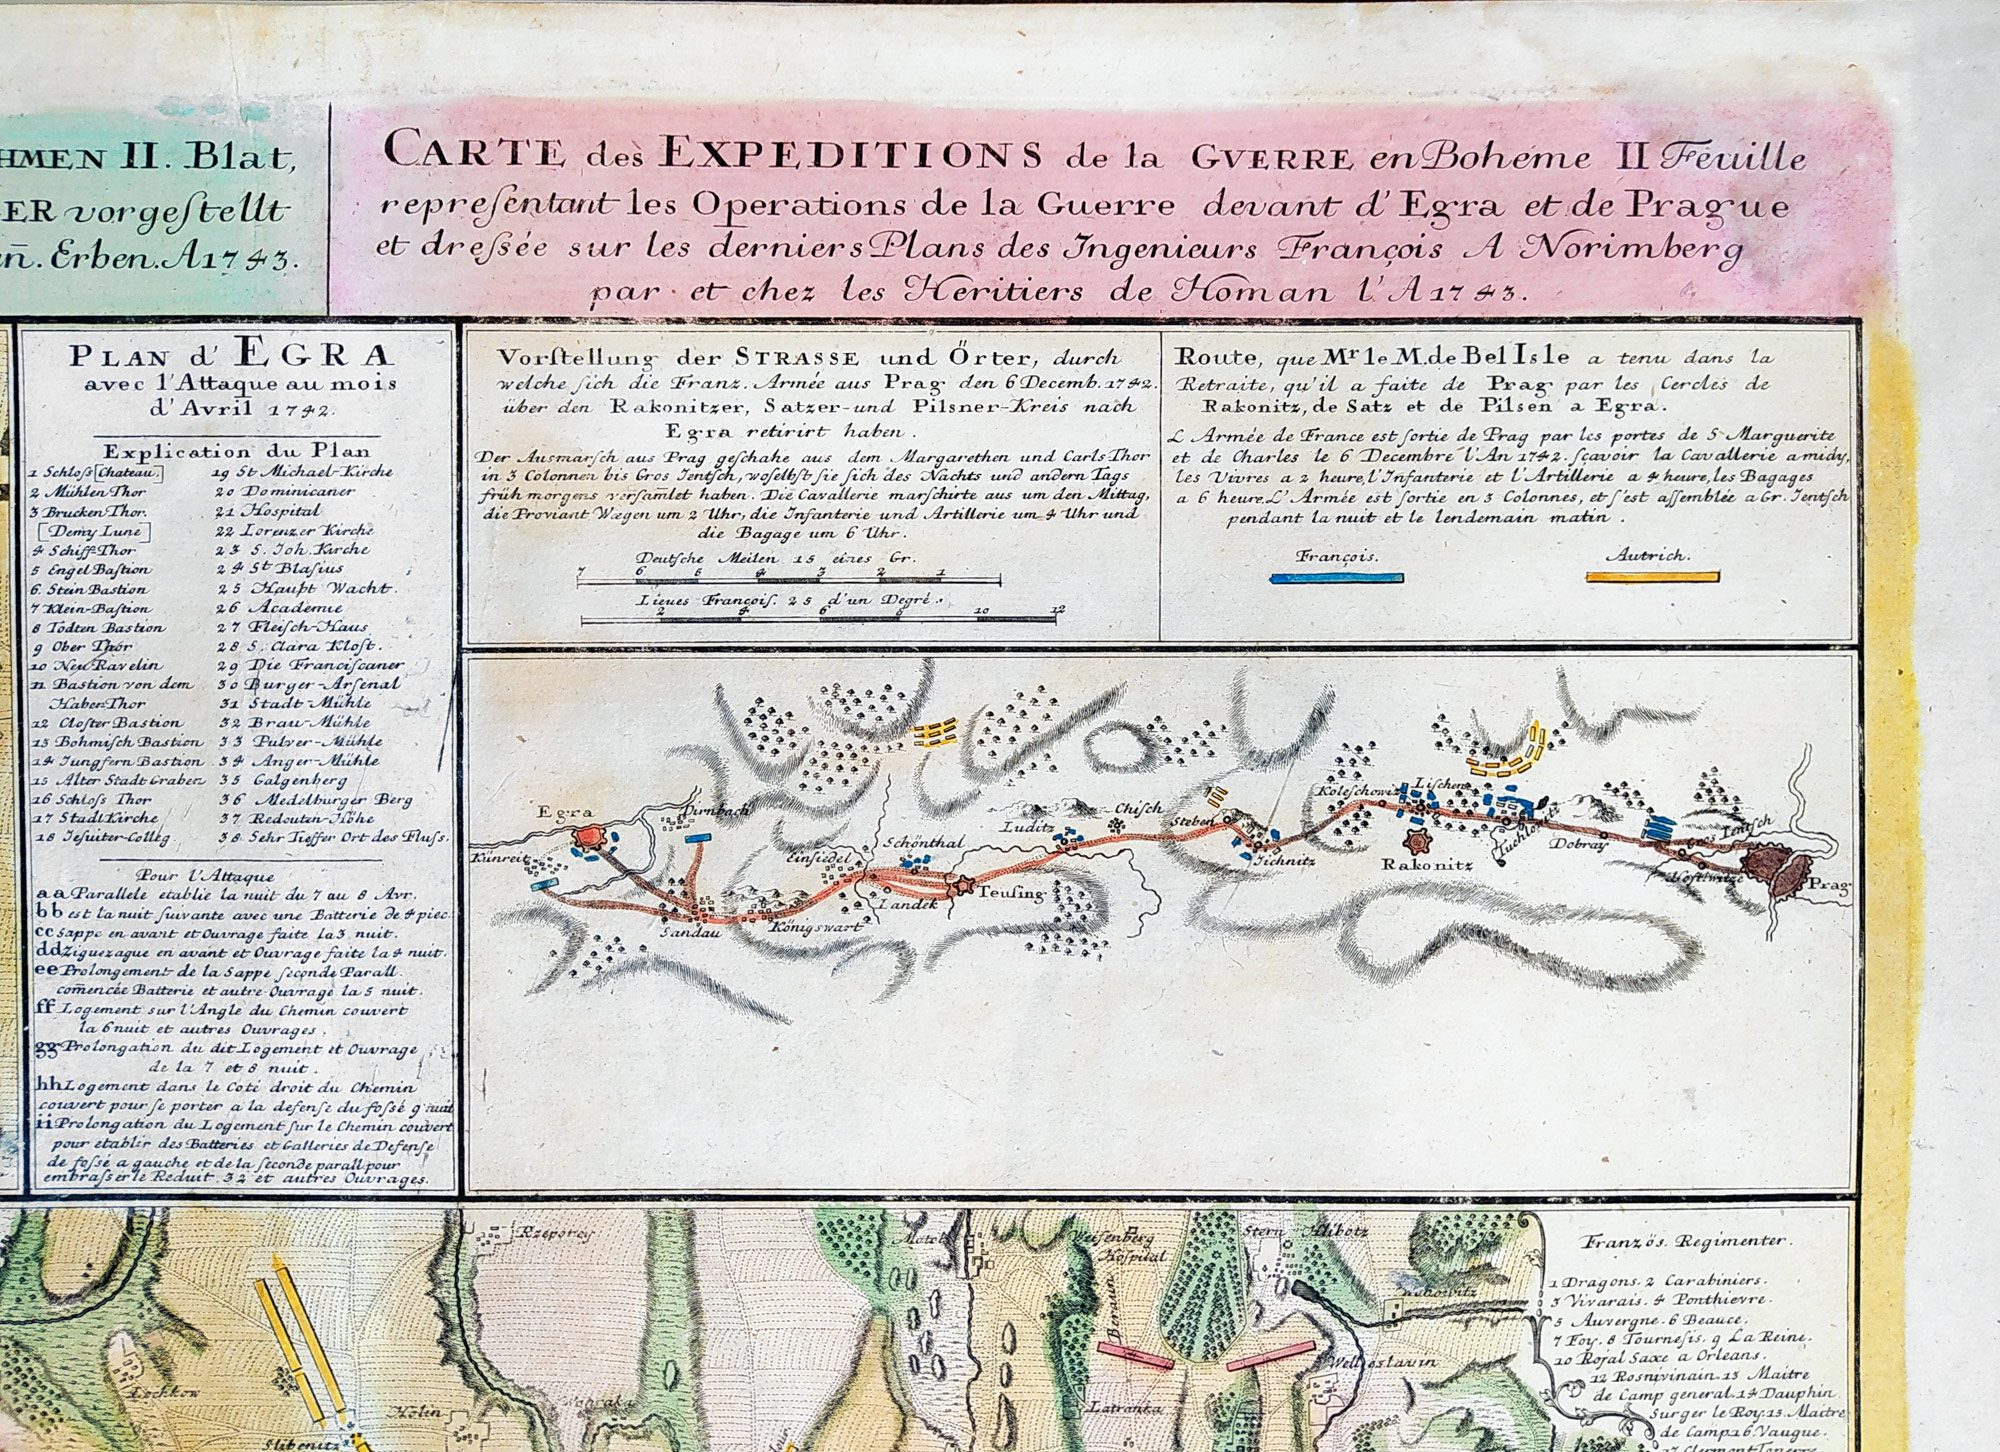 HMEN II. Blat,
ER vorgeſtellt
añ. Erben. A 1743.
CARTE des EXPEDITIONS de la GVERRE en Boheme II Feuille
repreſentant les Operations de la Guerre devant d'Egra et de Prague
et dreſsée sur les derniers Plans des Ingenieurs François A Norimberg
par et chez les Heritiers de Homan l'A 1743.
PLAN d'EGRA
avec l'Attaque au mois
d'Avril 1742.
Explication du Plan
1 Schloſs [Chateau.]
2 Mühlen Thor
3 Brucken Thor.
[Demy Lune]
4 Schiff-Thor
5 Engel Baſtion
6. Stein Bastion
7 Klein-Baſtion
8 Todten Bastion
9 Ober Thor
10 Neu Ravelin
11 Bastion von dem
Haber Thor
12 Cloſter Bastion
13 Bohmiſch Bastion
14 Jungfern Bastion
15 Alter Stadt Graben
16 Schloſs Thor
17 Stadt Kirche
18 Jeſuiter-Colleg
19 St Michael-Kirche
20 Dominicaner
21 Hospital
22 Lorenzer Kirche
23 S. Joh. Kirche
24 St Blaſius
25 Haupt Wacht.
26 Academie
27 Fleiſch-Haus
28 S. Clara Kloſt.
29 Die Franciſcaner
30 Burger-Arſenal
31 Stadt-Mühle
32 Brau-Mühle
33 Pulver-Mühle
34 Anger-Mühle
35 Galgenberg
36 Medelburger Berg
37 Redouten-Höhe
38 Sehr Tieffer Ort des Fluſs.
Pour l'Attaque
aa Parallele etablie la nuit du 7 au 8 Avr.
bb est la nuit ſuivante avec une Batterie de 4 piec.
cc Sappe en avant et Ouvrage faite la 3 nuit.
dd Ziguezague en avant et Ouvrage faite la 4 nuit.
ee Prolongement de la Sappe ſeconde Parall.
com̄encée Batterie et autre Ouvrage la 5 nuit.
ff Logement sur l'Angle du Chemin couvert
la 6 nuit et autres Ouvrages.
gg Prolongation du dit Logement et Ouvrage
de la 7 et 8 nuit.
hh Logement dans le Coté droit du Chemin
couvert pour ſe porter a la defenſe du foſsé 9 nuit
ii Prolongation du Logement ſur le Chemin couvert
pour etablir des Batteries et Galleries de Defenſe
de foſsé a gauche et de la ſeconde parall. pour
embraſser le Reduit. 32 et autres Ouvrages.
Vorſtellung der STRASSE und Örter, durch
welche ſich die Franz. Armée aus Prag den 6 Decemb. 1742.
über den Rakonitzer, Satzer-und Pilsner-Kreis nach
Egra retirirt haben.
Der Ausmarſch aus Prag geſchahe aus dem Margarethen und Carls Thor
in 3 Colonnen bis Gros Jentſch, woſelbſt ſie ſich des Nachts und andern Tags
früh morgens verſamlet haben. Die Cavallerie marſchirte aus um den Mittag,
die Proviant Wægen um 2 Uhr, die Infanterie und Artillerie um 4 Uhr und
die Bagage um 6 Uhr.
Deutſche Meilen 15 eines Gr.
7 6 5 4 3 2 1
Lieues Françoiſ. 25 d'un Degré.
2 4 6 8 10 12
Route, que Mr le M. de Bel Isle a tenu dans la
Retraite, qu'il a faite de Prag par les Cercles de
Rakonitz, de Satz et de Pilsen a Egra.
L'Armée de France est ſortie de Prag par les portes de S. Marguerite
et de Charles le 6 Decembre l'An 1742. ſçavoir la Cavallerie a midy,
les Vivres a 2 heure, l'Infanterie et l'Artillerie a 4 heure, les Bagages
a 6 heure. L'Armée est ſortie en 3 Colonnes, et ſ'est aſſemblée a Gr. Jentſch
pendant la nuit et le lendemain matin.
François.
Autrich.
Egra
Kunreit
Dirnbach
Sandau
Königswart
Einſiedel
Schönthal
Landek
Teuſing
Luditz
Chiſch
Steben
Jechnitz
Koleſchowitz
Liſchen
Rakonitz
Tuchlowitz
Dobray
Gros Jentſch
Hoſtiwitz
Prag
Rzeporey
Motol
Weiſenberg
Hospital
Stern
Hlibotz
Lochkow
Holin
Slibenitz
Latranka
Welleslavin
Französ. Regimenter.
1 Dragons. 2 Carabiniers.
3 Vivarais. 4 Ponthievre.
5 Auvergne. 6 Beauce.
7 Foy. 8 Tourneſis. 9 La Reine.
10 Rojal Saxe a Orleans.
12 Rosnivinain. 13 Maitre
de Camp general. 14 Dauphin.
Surger le Roy. 15. Maitre
de Camp. 16 Vaugue.
17 Clermont Tonerre